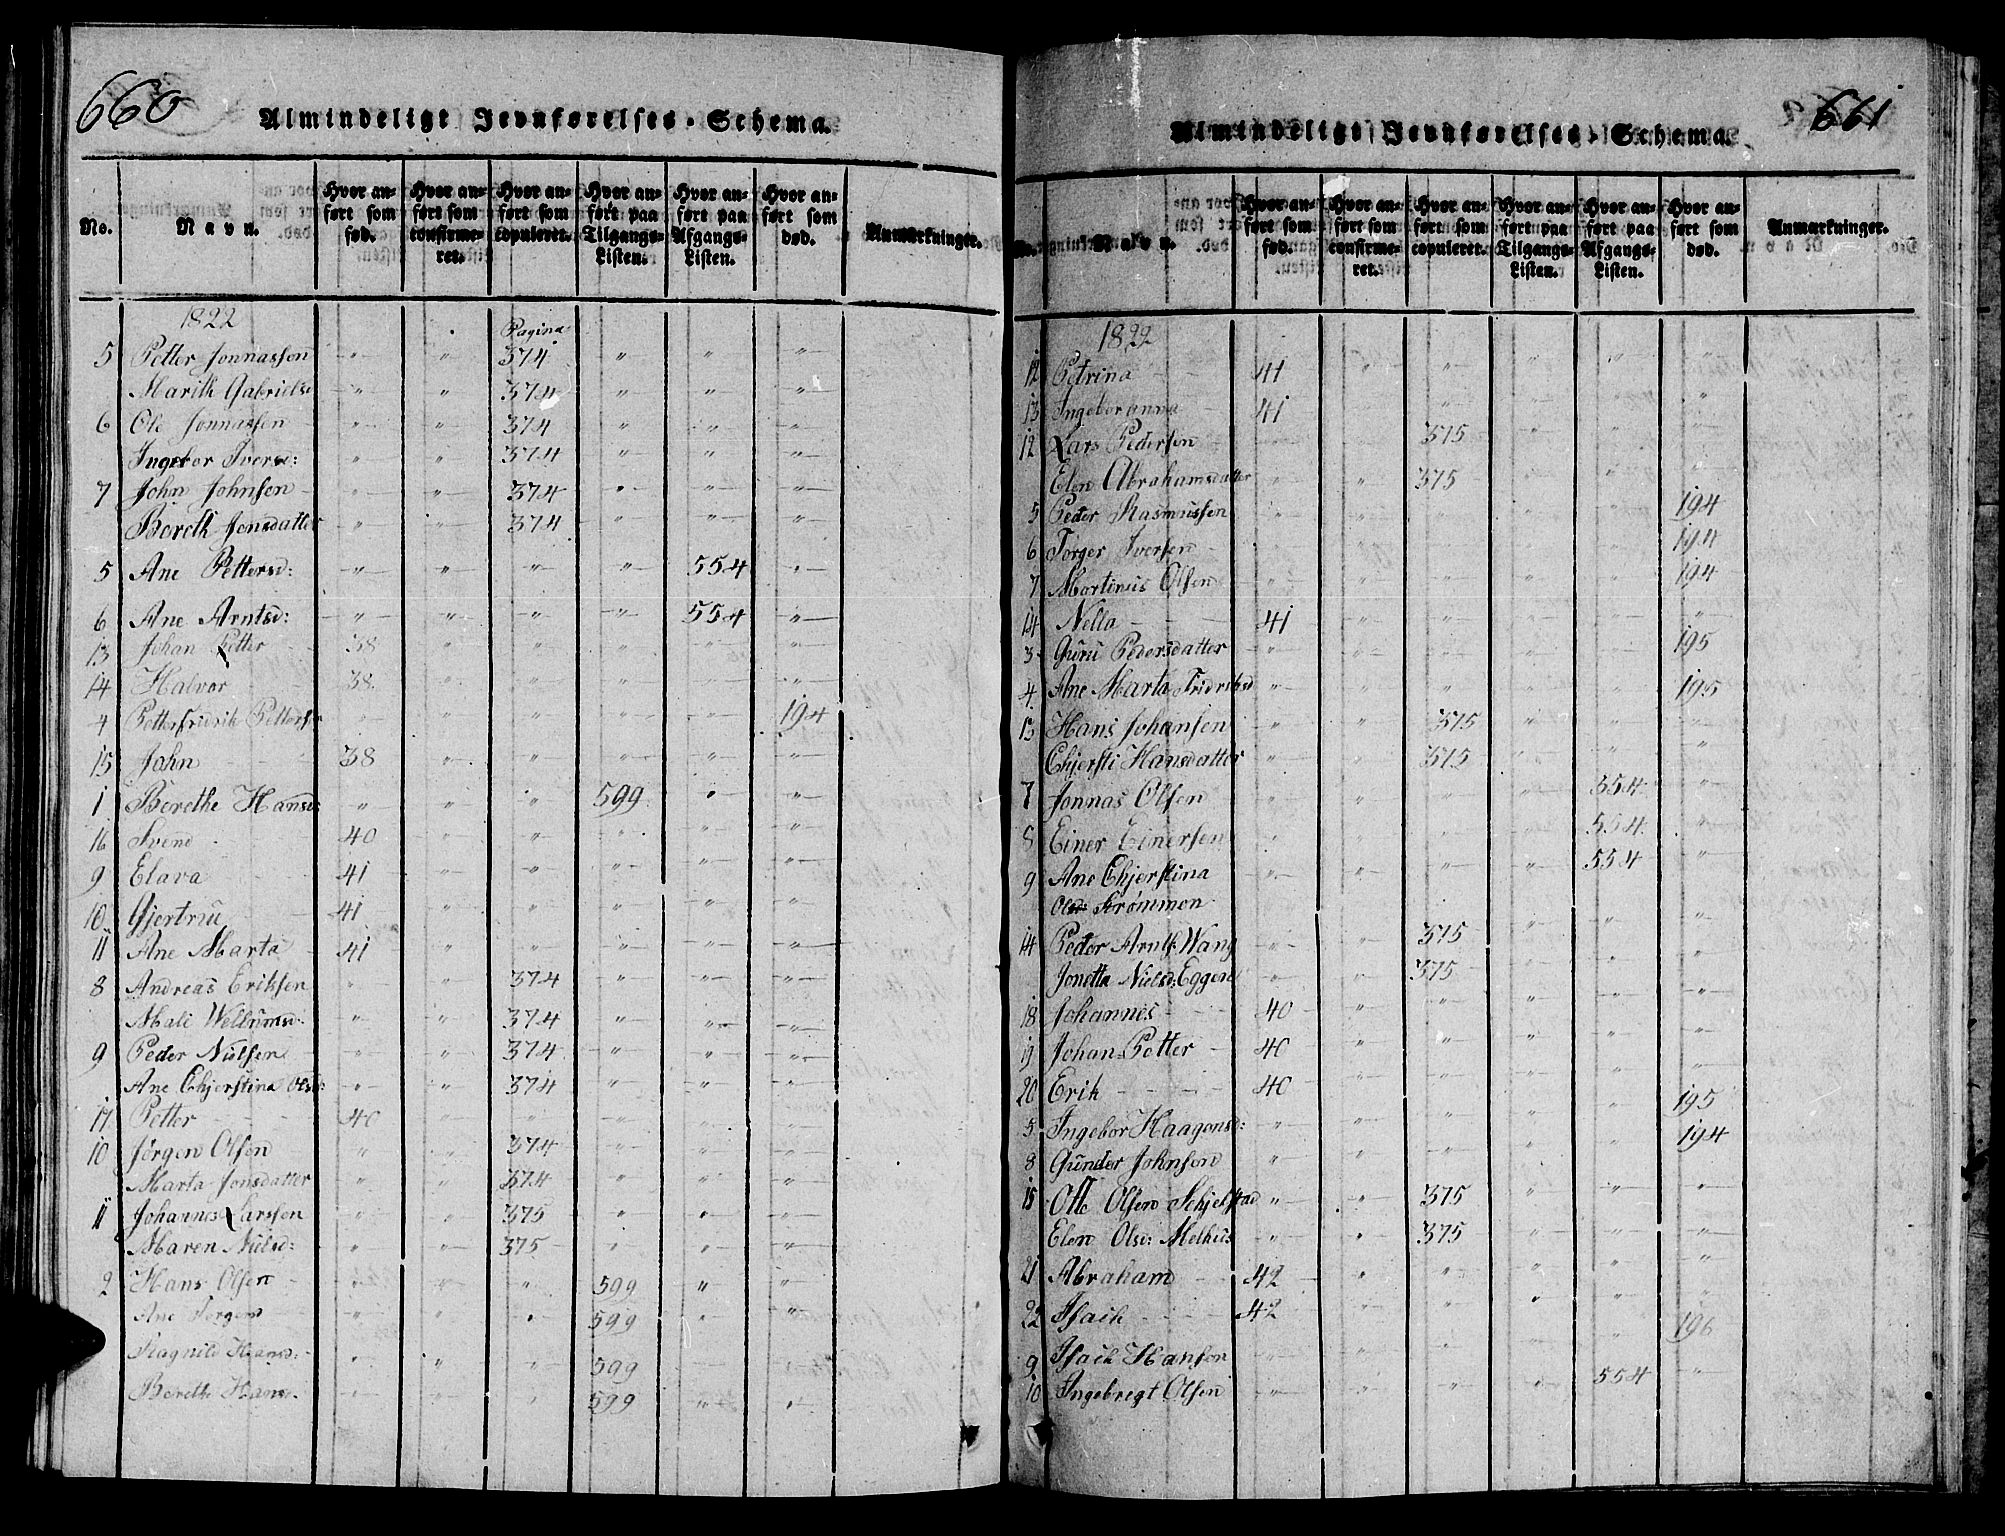 660
Almindeligt Jevnførelses-Schema.
No. | Navn. | Hvor anført som fød. | Hvor anført som confirmeret. | Hvor anført som copuleret. | Hvor anført paa Tilgangs-Listen. | Hvor anført paa Afgangs-Listen. | Hvor anført som død. | Anmærkninger.
1822 Pagina
5 Petter Jonnassen " " 374 " " "
Marith Gabrielsd " " 374 " " "
6 Ole Jonnassen " " 374 " " "
Ingebor Iversd: " " 374 " " "
7 John Johnsen " " 374 " " "
Bereth Jonsdatter " " 374 " " "
5 Ane Pettersd: " " " " 554 "
6 Ane Arntsd: " " " " 554 "
13 Johan Petter 38 " " " " "
14 Halvor 38 " " " " "
4 Petterfridrik Petters " " " " " 194
15 John 38 " " " " "
1 Berethe Hansd: " " " 599 " "
16 Svend 40 " " " " "
9 Elava 41 " " " " "
10 Gjertru 41 " " " " "
11 Ane Marta 41 " " " " "
8 Andreas Eriksen " " 374 " " "
Mali Wellumsd: " " 374 " " "
9 Peder Nielsen " " 374 " " "
Ane Chjerstina Olsd: " " 374 " " "
17 Petter 40 " " " " "
10 Jørgen Olsen " " 374 " " "
Marta Jonsdatter " " 374 " " "
11 Johannes Larssen " " 375 " " "
Maren Nielsd: " " 375 " " "
2 Hans Olsen " " " 599 " "
Ane Torgers " " " 599 " "
Ragnild Hansd: " " " 599 " "
Berethe Hans. " " " 599 " "
661
Almindeligt Jevnførelses-Schema.
No. | Navn. | Hvor anført som fød. | Hvor anført som confirmeret. | Hvor anført som copuleret. | Hvor anført paa Tilgangs-Listen. | Hvor anført paa Afgangs-Listen. | Hvor anført som død. | Anmærkninger.
1822
12 Petrina 41 " " " " "
13 Ingeboranna 41 " " " " "
12 Lars Pedersen " " 375 " " "
Elen Abrahamsdatter " " 375 " " "
5 Peder Rasmussen " " " " " 194
6 Torger Iversen " " " " " 194
7 Mortinus Olsen " " " " " 194
14 Nella 41 " " " " "
3 Guru Pedersdatter " " " " " 195
4 Ane Marta Fridriksd " " " " " 195
13 Hans Johansen " " 375 " " "
Chjersti Hansdatter " " 375 " " "
7 Jonnas Olsen " " " " 554 "
8 Einer Einersen " " " " 554 "
9 Ane Chjerstina " " " " 554 "
Olsd: Strømmen
14 Peder Arnts. Wang " " 375 " " "
Jonetta Nielsd: Eggen " " 375 " " "
18 Johannes 40 " " " " "
19 Johan Petter 40 " " " " "
20 Erik 40 " " " " "
5 Ingebor Haagensd: " " " " " 195
8 Gunder Johnsen " " " " " 194
15 Ole Olsen Schjelstad " " 375 " " "
Elen Olsd: Melhus " " 375 " " "
21 Abraham 42 " " " " "
22 Isach 42 " " " " "
9 Isach Hansen " " " " " 196
10 Ingebregt Olsen " " " " 554 "